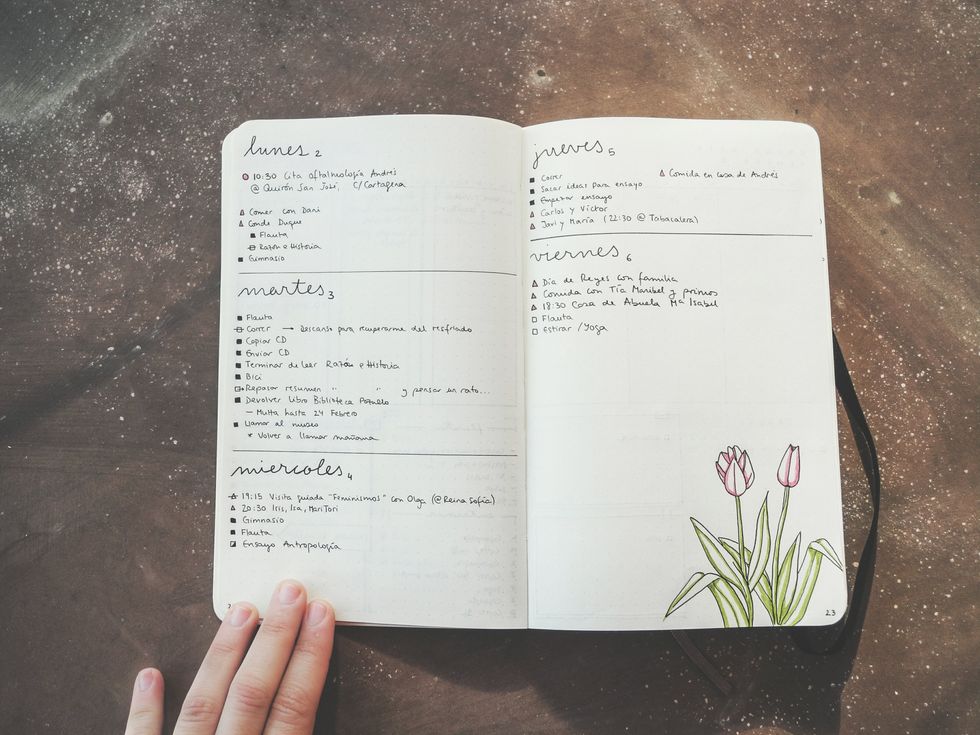 lunes 2
10:30 Cita oftalmología Andrés
@ Quirón San José, C/Cartagena
Comer con Dani
Conde Duque
Flauta
Razón e Historia
Gimnasio
martes 3
Flauta
Correr → Descanso para recuperarme del resfriado
Copiar CD
Enviar CD
Terminar de leer Razón e Historia
Bici
Repasar resumen " " y pensar un rato...
Devolver Libro Biblioteca Pozuelo
– Multa hasta 24 Febrero
Llamar al museo
* Volver a llamar mañana
miercoles 4
19:15 Visita guiada "Feminismos" con Olga (@Reina Sofía)
20:30 Iris, Isa, MariTori
Gimnasio
Flauta
Ensayo Antropología
jueves 5
Correr
Sacar ideas para ensayo
Empezar ensayo
Carlos y Víctor
Javi y María (22:30 @ Tabacalera)
Comida en casa de Andrés
viernes 6
Día de Reyes con familia
Comida con Tía Maribel y primos
18:30 Casa de Abuela Mª Isabel
Flauta
Estirar / Yoga
23